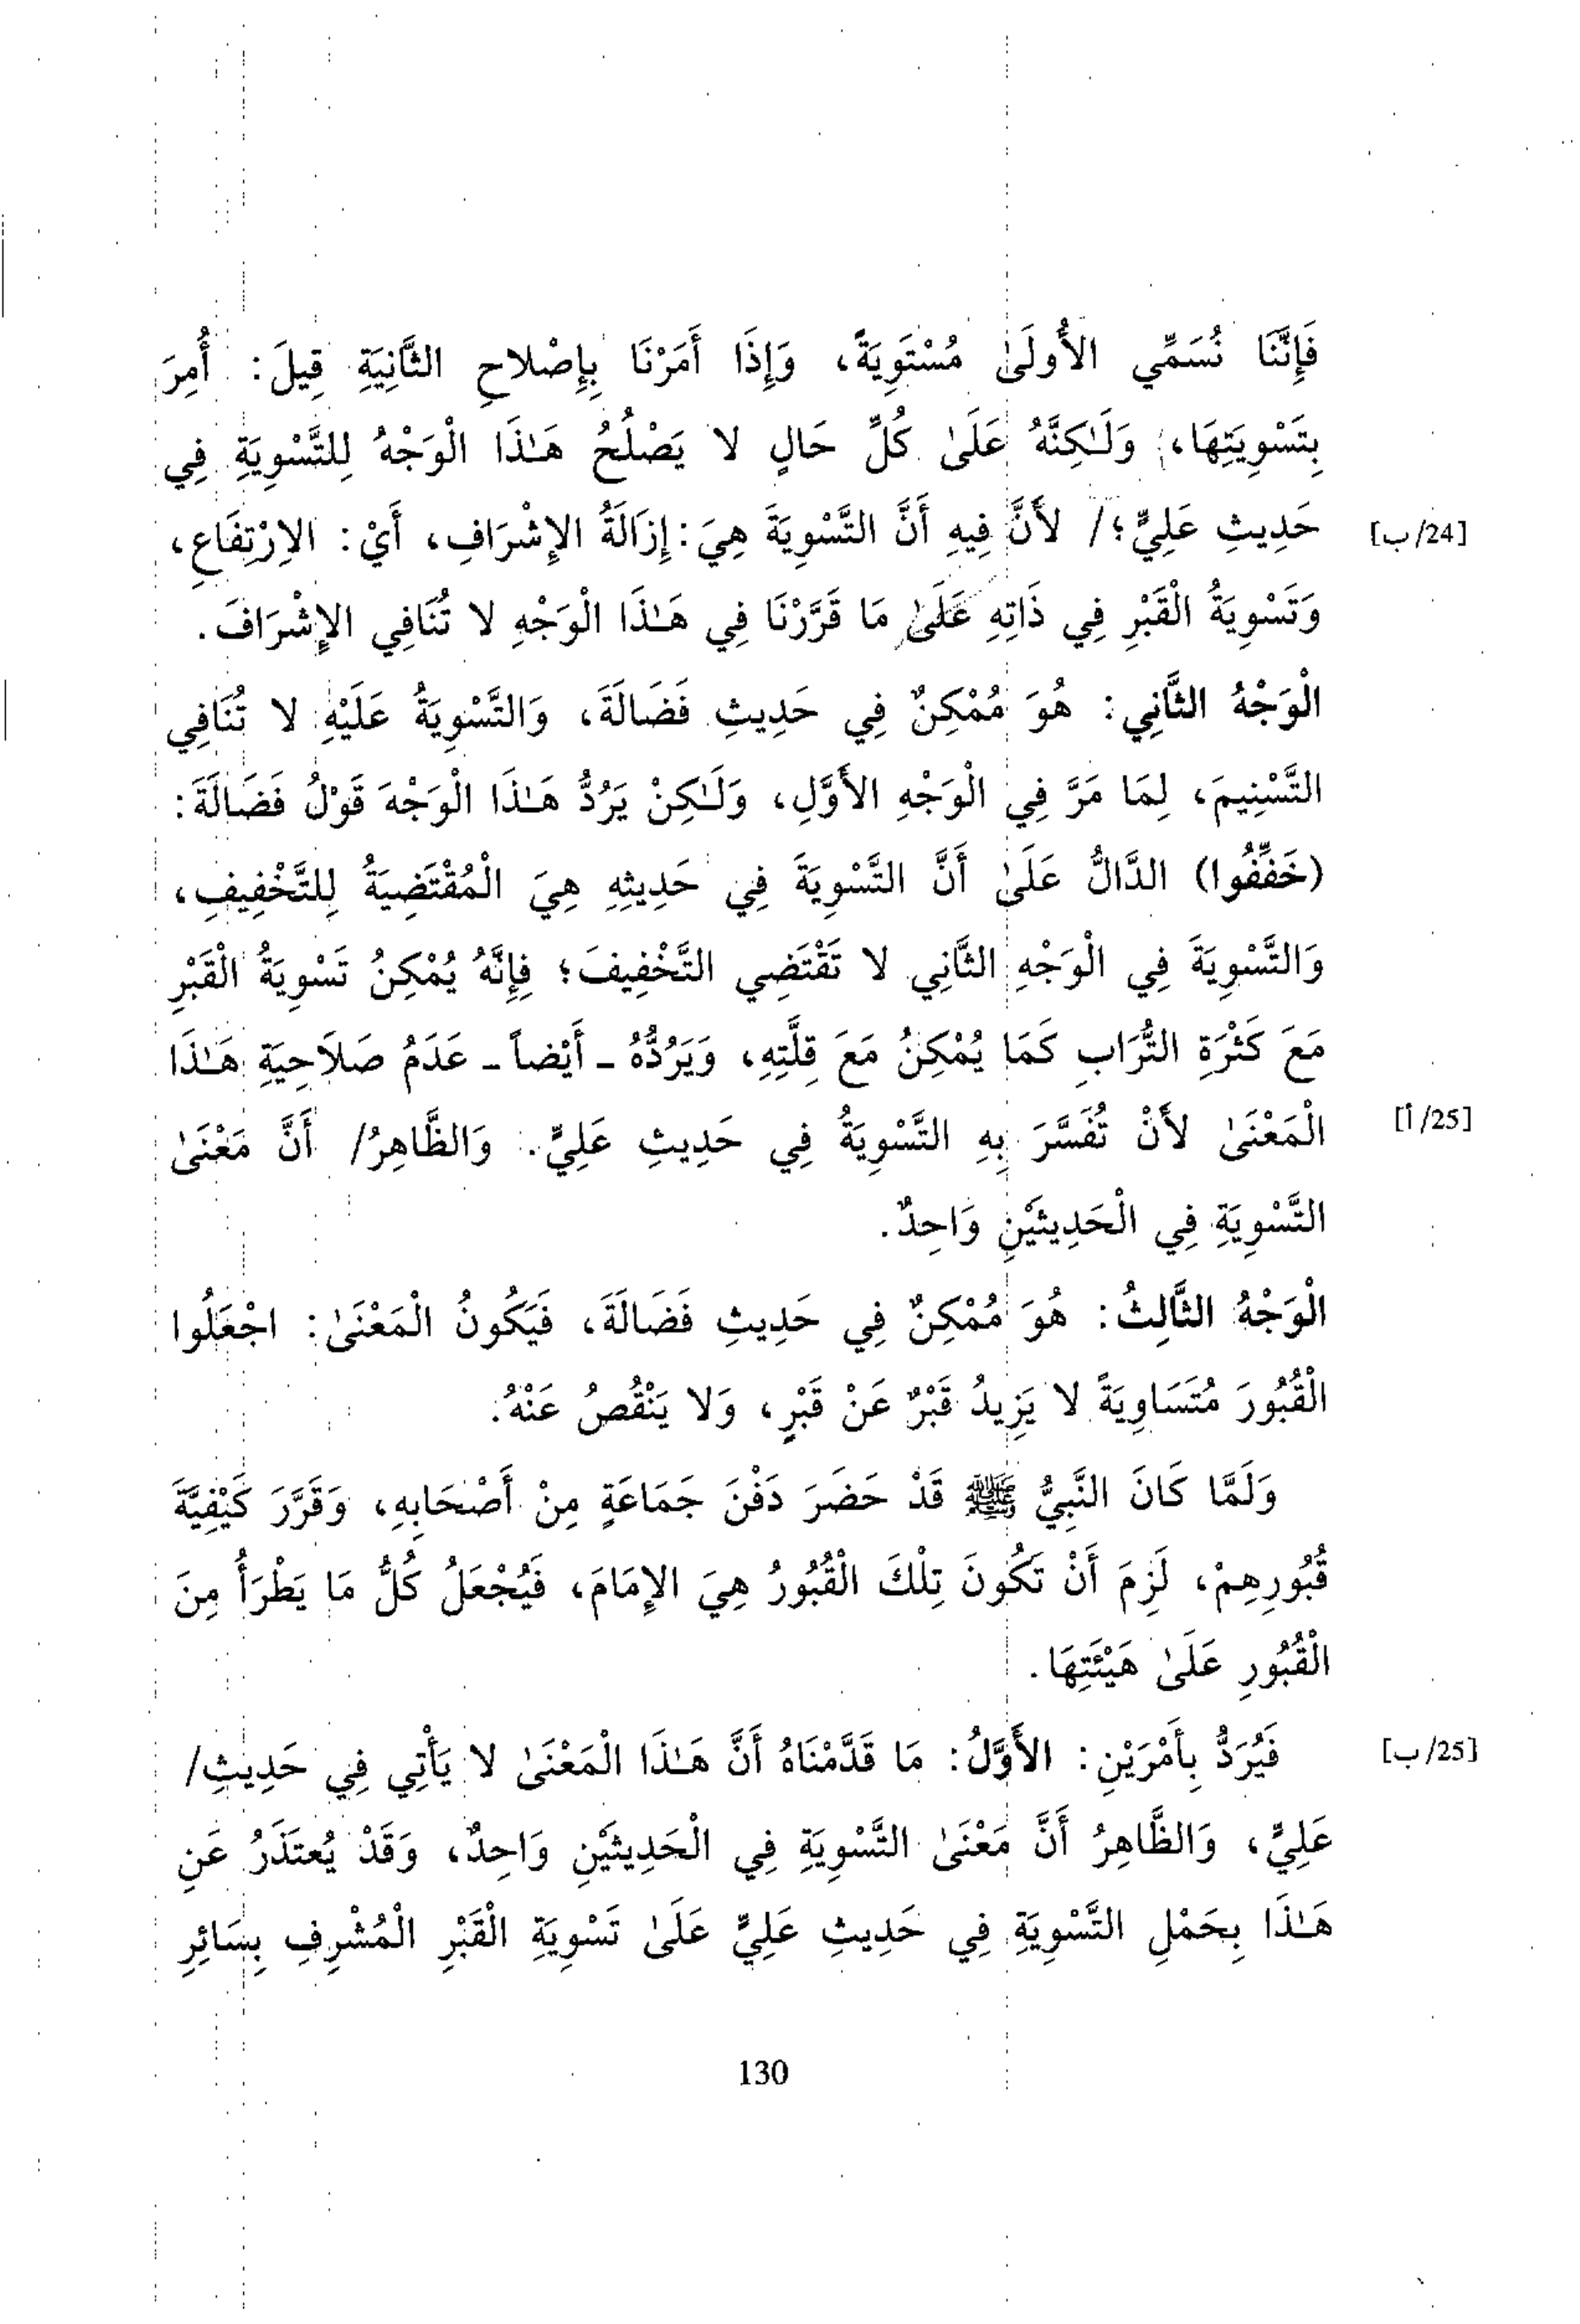 فَإِنَّنَا نُسَمِّي الأُولَىٰ مُسْتَوِيَةً، وَإِذَا أَمَرْنَا بِإِصْلاحِ الثَّانِيَةِ قِيلَ: أُمِرَ
بِتَسْوِيَتِهَا، وَلَـٰكِنَّهُ عَلَىٰ كُلِّ حَالٍ لا يَصْلُحُ هَـٰذَا الْوَجْهُ لِلتَّسْوِيَةِ فِي
حَدِيثِ عَلِيٍّ؛/ لأَنَّ فِيهِ أَنَّ التَّسْوِيَةَ هِيَ: إِزَالَةُ الإِشْرَافِ، أَيْ: الاِرْتِفَاعِ، [24/ب]
وَتَسْوِيَةُ الْقَبْرِ فِي ذَاتِهِ عَلَىٰ مَا قَرَّرْنَا فِي هَـٰذَا الْوَجْهِ لا تُنَافِي الإِشْرَافَ.
الْوَجْهُ الثَّانِي: هُوَ مُمْكِنٌ فِي حَدِيثِ فَضَالَةَ، وَالتَّسْوِيَةُ عَلَيْهِ لا تُنَافِي
التَّسْنِيمَ، لِمَا مَرَّ فِي الْوَجْهِ الأَوَّلِ، وَلَـٰكِنْ يَرُدُّ هَـٰذَا الْوَجْهَ قَوْلُ فَضَالَةَ:
(خَفِّفُوا) الدَّالُّ عَلَىٰ أَنَّ التَّسْوِيَةَ فِي حَدِيثِهِ هِيَ الْمُقْتَضِيَةُ لِلتَّخْفِيفِ،
وَالتَّسْوِيَةَ فِي الْوَجْهِ الثَّانِي لا تَقْتَضِي التَّخْفِيفَ؛ فِإِنَّهُ يُمْكِنُ تَسْوِيَةُ الْقَبْرِ
مَعَ كَثْرَةِ التُّرَابِ كَمَا يُمْكِنُ مَعَ قِلَّتِهِ، وَيَرُدُّهُ ـ أَيْضاً ـ عَدَمُ صَلاَحِيَةِ هَـٰذَا
الْمَعْنَىٰ لأَنْ تُفَسَّرَ بِهِ التَّسْوِيَةُ فِي حَدِيثِ عَلِيٍّ. وَالظَّاهِرُ/ أَنَّ مَعْنَىٰ [25/أ]
التَّسْوِيَةِ فِي الْحَدِيثَيْنِ وَاحِدٌ.
الْوَجْهُ الثَّالِثُ: هُوَ مُمْكِنٌ فِي حَدِيثِ فَضَالَةَ، فَيَكُونُ الْمَعْنَىٰ: اجْعَلُوا
الْقُبُورَ مُتَسَاوِيَةً لا يَزِيدُ قَبْرٌ عَنْ قَبْرٍ، وَلا يَنْقُصُ عَنْهُ.
وَلَمَّا كَانَ النَّبِيُّ ﷺ قَدْ حَضَرَ دَفْنَ جَمَاعَةٍ مِنْ أَصْحَابِهِ، وَقَرَّرَ كَيْفِيَّةَ
قُبُورِهِمْ، لَزِمَ أَنْ تَكُونَ تِلْكَ الْقُبُورُ هِيَ الإِمَامَ، فَيُجْعَلُ كُلُّ مَا يَطْرَأُ مِنَ
الْقُبُورِ عَلَىٰ هَيْئَتِهَا.
فَيُرَدُّ بِأَمْرَيْنِ: الأَوَّلُ: مَا قَدَّمْنَاهُ أَنَّ هَـٰذَا الْمَعْنَىٰ لا يَأْتِي فِي حَدِيثِ/ [25/ب]
عَلِيٍّ، وَالظَّاهِرُ أَنَّ مَعْنَىٰ التَّسْوِيَةِ فِي الْحَدِيثَيْنِ وَاحِدٌ، وَقَدْ يُعتَذَرُ عَنِ
هَـٰذَا بِحَمْلِ التَّسْوِيَةِ فِي حَدِيثِ عَلِيٍّ عَلَىٰ تَسْوِيَةِ الْقَبْرِ الْمُشْرِفِ بِسَائِرِ
130